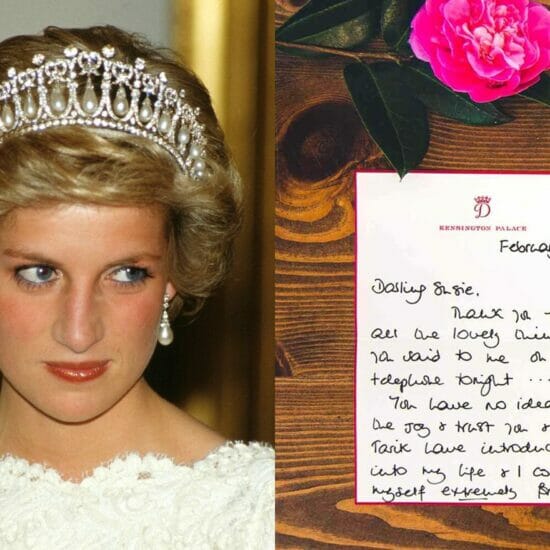 D
KENSINGTON PALACE
February
Darling Susie,
Thank you
all the lovely thin
you said to me on
telephone tonight ...
You have no idea
the joy & trust you &
Tarik have introduc
into my life & I co
myself extremely